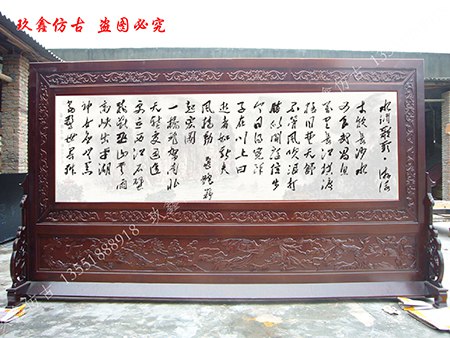 玖鑫仿古 盗图必究
水调歌头·游泳
才饮长沙水
又食武昌鱼
万里长江横渡
极目楚天舒
不管风吹浪打
胜似闲庭信步
今日得宽馀
子在川上曰
逝者如斯夫
风樯动 龟蛇静
起宏图
一桥飞架南北
天堑变通途
更立西江石壁
截断巫山云雨
高峡出平湖
神女应无恙
当惊世界殊
仿古 13551888918 玖鑫仿古